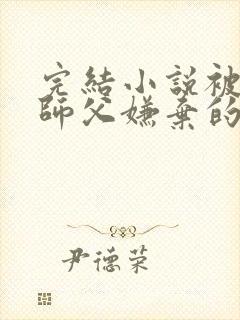 完結小說被
師父嫌棄的
尹德荣